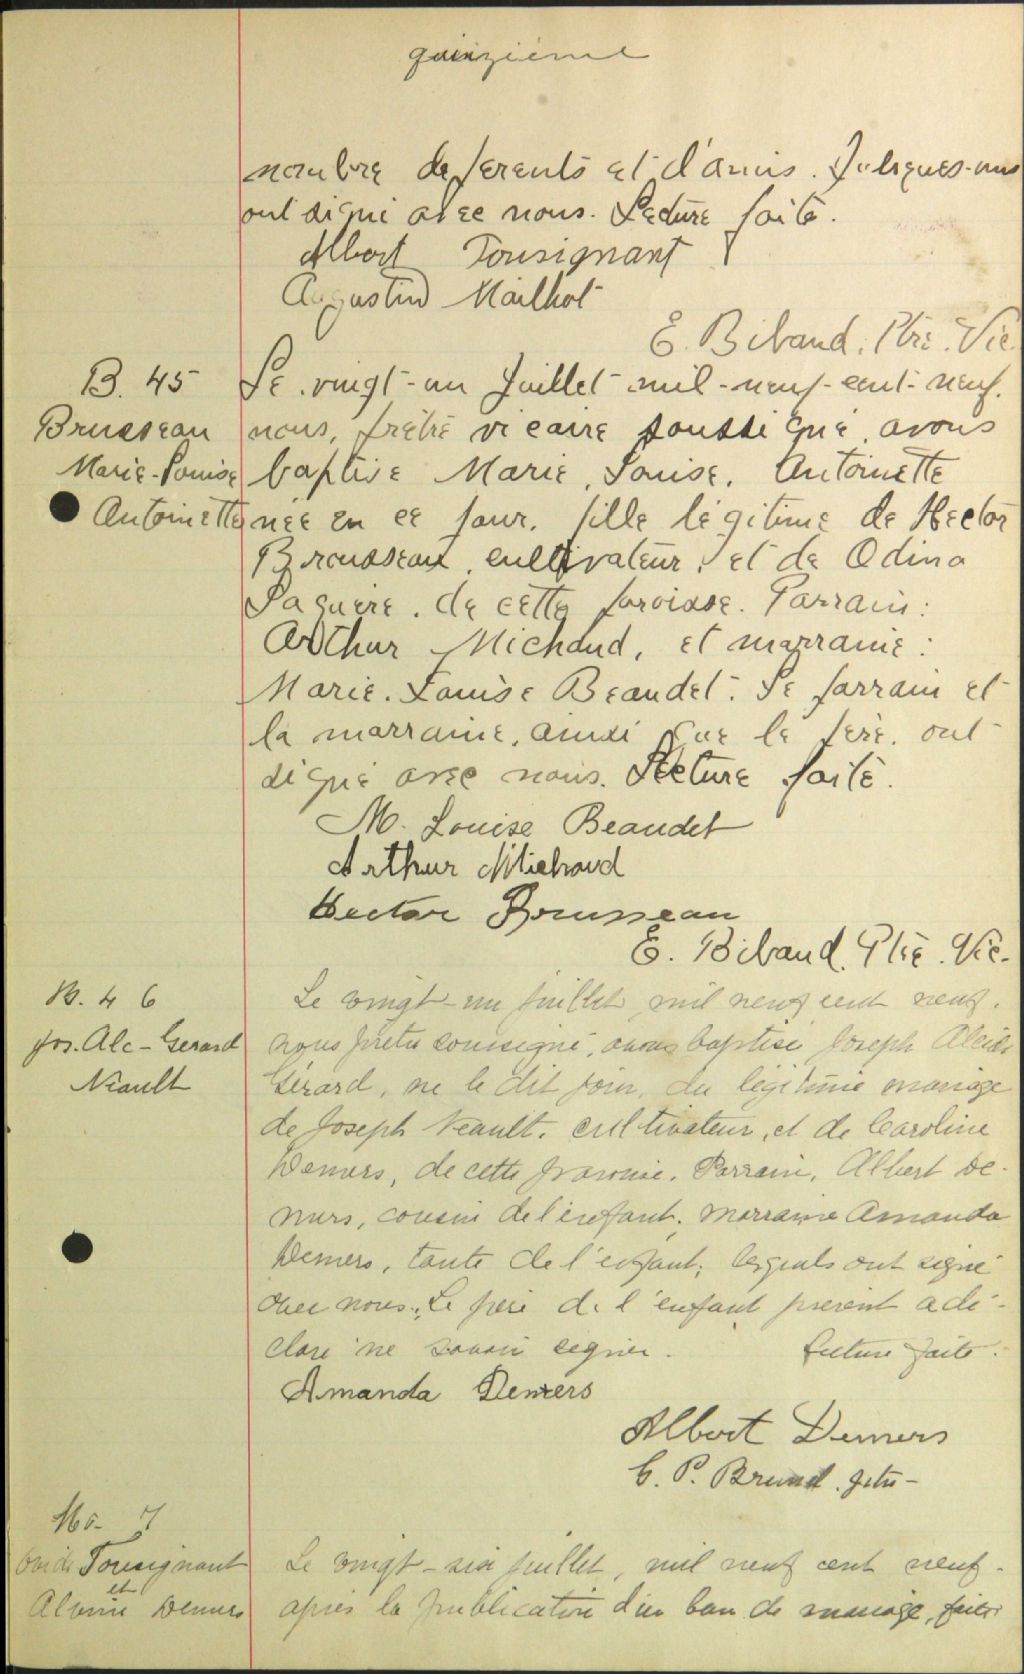 quinzième
nombre de parents et d'amis. Quelques-uns
ont signé avec nous. Lecture faite.
Albert Tousignant
Augustin Mailhot
E. Biband. Ptre. Vic.
B. 45
Brusseau
Marie-Louise
Antoinette
Le vingt-un Juillet mil-neuf-cent-neuf,
nous, prêtre vicaire soussigné, avons
baptisé Marie, Louise, Antoinette
née en ce jour, fille légitime de Hector
Brousseau, cultivateur, et de Odina
Laquère, de cette paroisse. Parrain:
Arthur Michaud, et marraine:
Marie-Louise Beaudet. Le parrain et
la marraine, ainsi que le père, ont
signé avec nous. Lecture faite.
M. Louise Beaudet
Arthur Michaud
Hector Brousseau
E. Biband. Ptre. Vic.
B. 46
Jos. Alc-Gerard
Neault
Le vingt-un juillet, mil neuf cent neuf,
nous prêtre soussigné, avons baptisé Joseph Alcide
Gérard, né le dit jour, du légitime mariage
de Joseph Neault, cultivateur, et de Caroline
Demers, de cette paroisse. Parrain, Albert De-
mers, cousin de l'enfant; marraine Amanda
Demers, tante de l'enfant; lesquels ont signé
avec nous. Le père de l'enfant présent a dé-
claré ne savoir signer. Lecture faite.
Amanda Demers
Albert Demers
C. P. Brunel. ptre-
M. 7
Ovide Tousignant
et
Alvine Demers
Le vingt-six juillet, mil neuf cent neuf,
après la publication d'un ban de mariage, faite